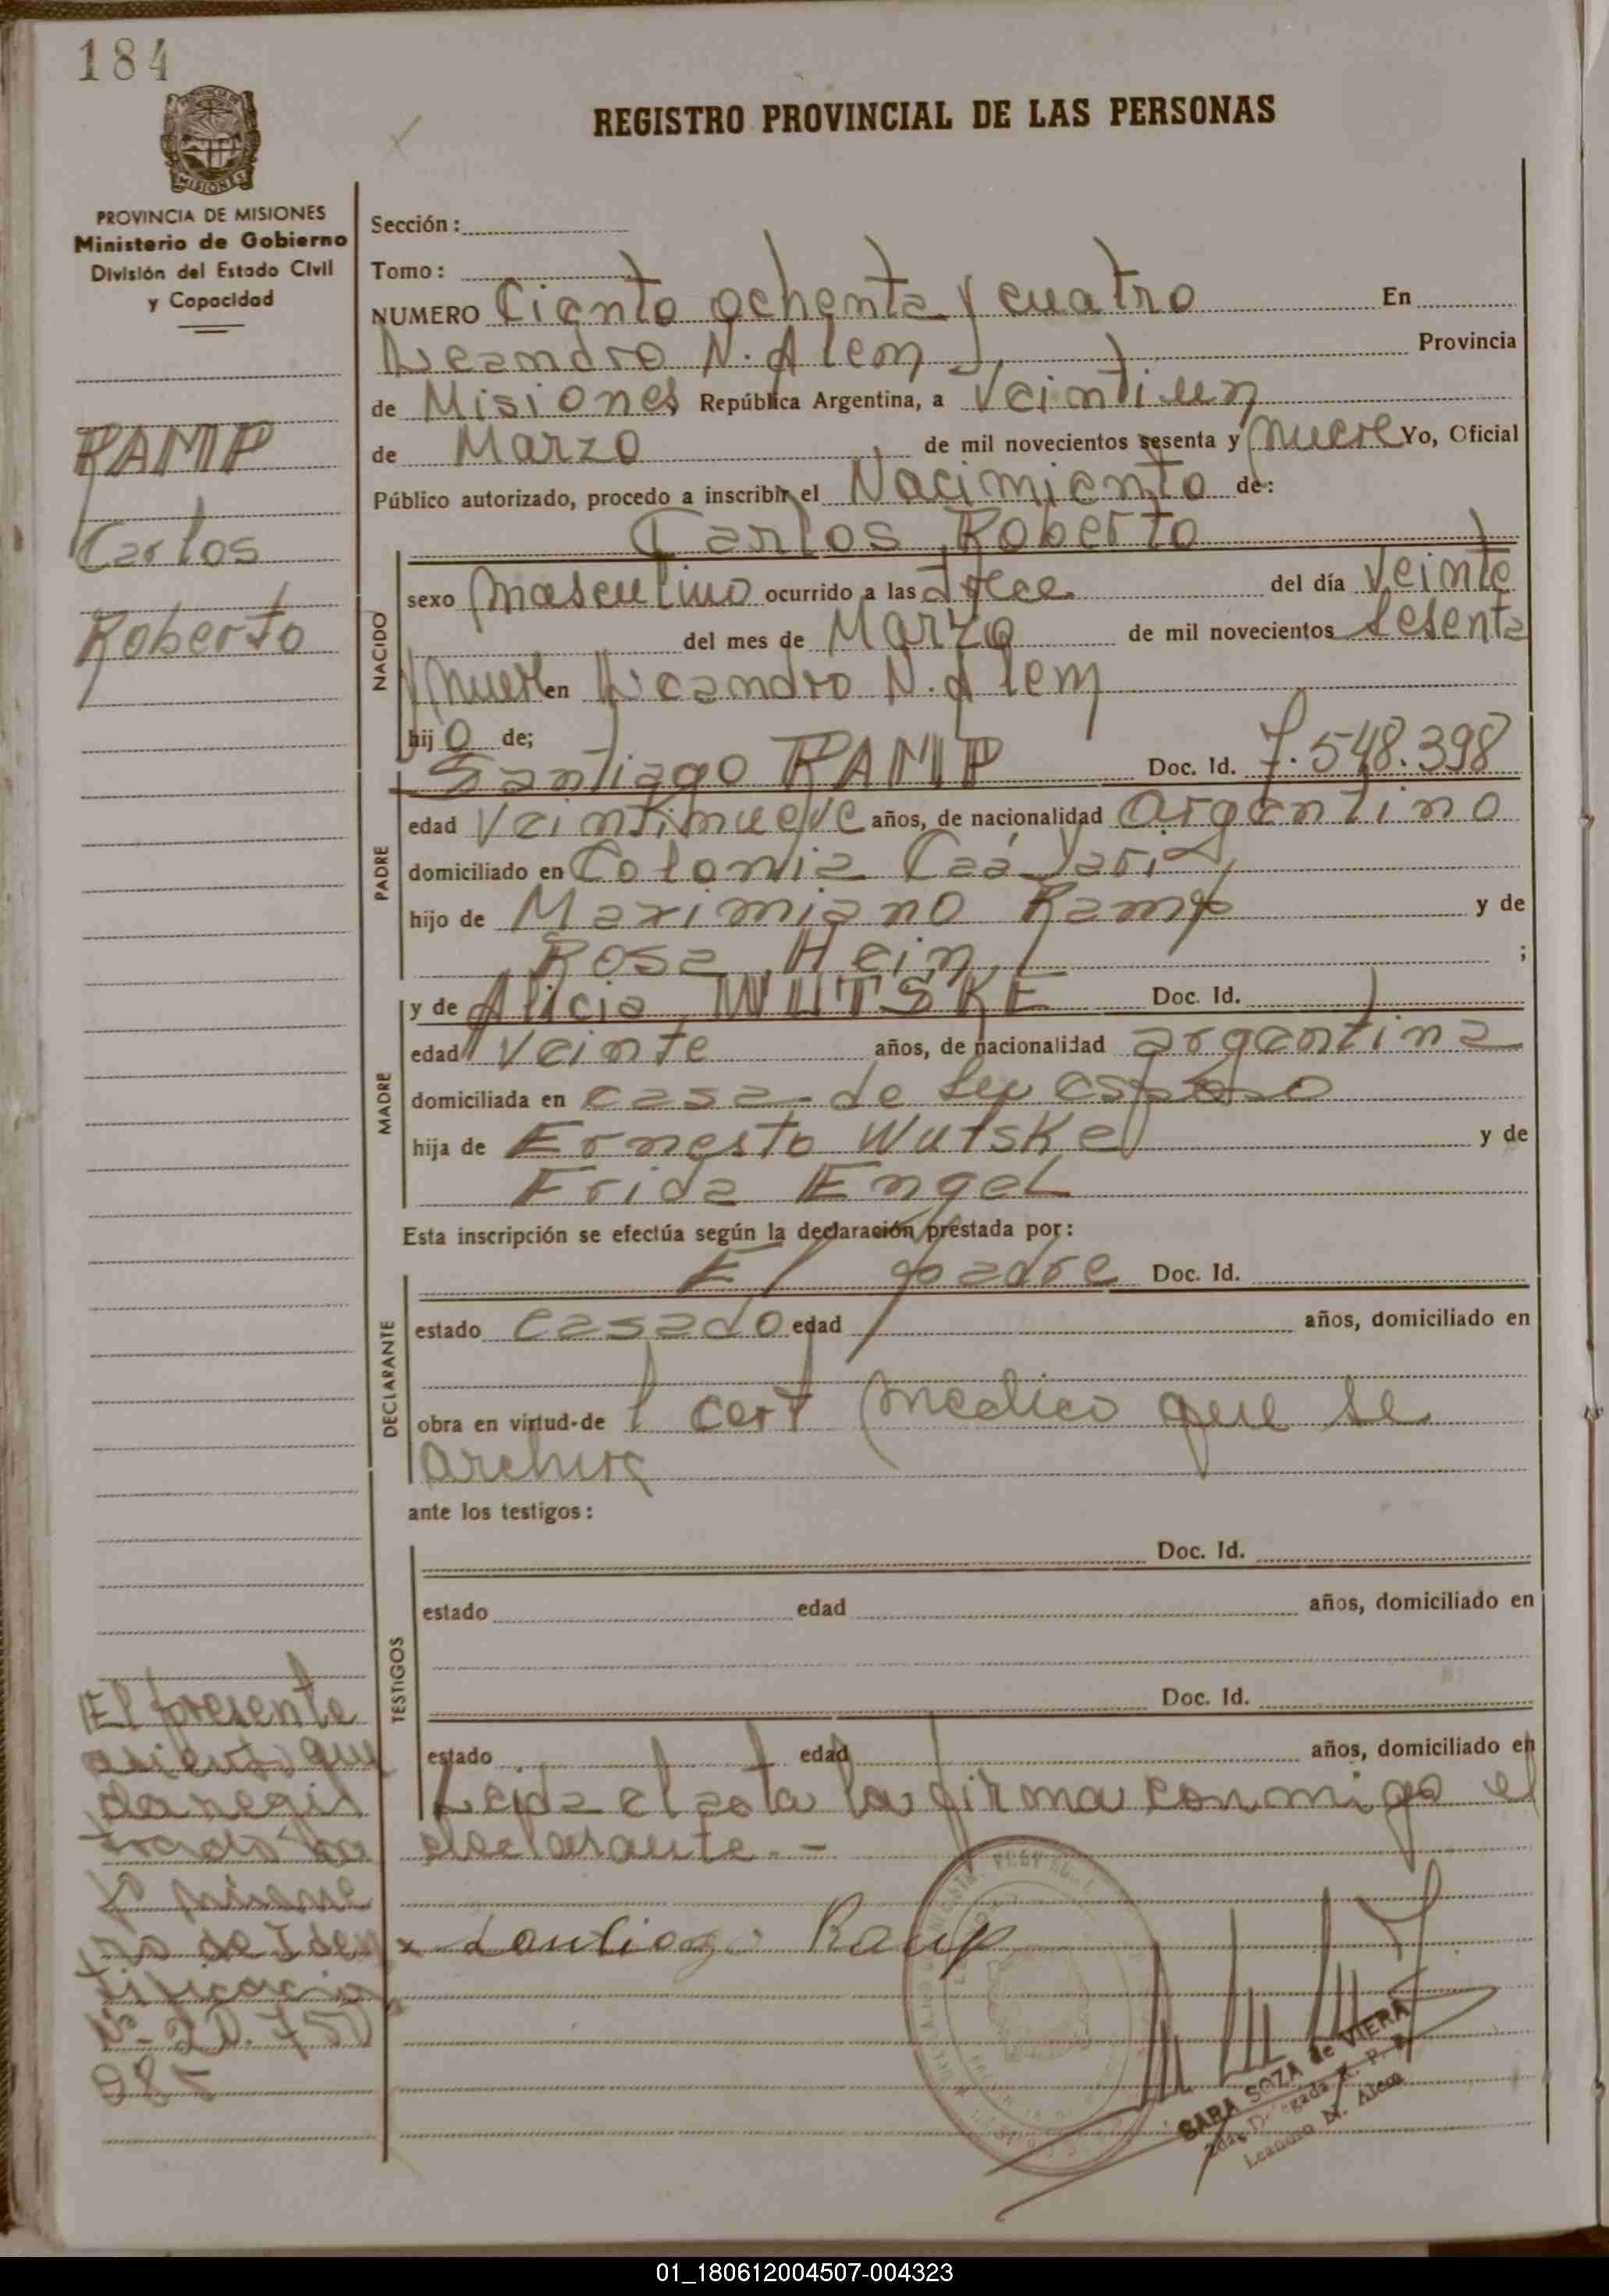 184
REGISTRO PROVINCIAL DE LAS PERSONAS
MISIONES
PROVINCIA DE MISIONES
Ministerio de Gobierno
División del Estado Civil
y Capacidad
RAMP
Carlos
Roberto
Sección:
Tomo:
NUMERO Ciento ochenta y cuatro En
Leandro N. Alem Provincia
de Misiones República Argentina, a Veintiun
de Marzo de mil novecientos sesenta y nueve Yo, Oficial
Público autorizado, procedo a inscribir el Nacimiento de:
Carlos Roberto
NACIDO
sexo masculino ocurrido a las doce del día Veinte
del mes de Marzo de mil novecientos sesenta
y nueve en Leandro N. Alem
hij o de;
Santiago RAMP Doc. Id. 7.548.398
PADRE
edad Veintinueve años, de nacionalidad argentino
domiciliado en Colonia Caá Yarí
hijo de Maximiano Ramp y de
Rosa Hein ;
y de Alicia WUTSKE Doc. Id.
MADRE
edad Veinte años, de nacionalidad argentina
domiciliada en casa de su esposo
hija de Ernesto Wutske y de
Frida Engel
Esta inscripción se efectúa según la declaración prestada por:
El padre Doc. Id.
DECLARANTE
estado casado edad años, domiciliado en
obra en virtud de 1 cert medico que se
archiva
ante los testigos:
TESTIGOS
Doc. Id.
estado edad años, domiciliado en
Doc. Id.
estado edad años, domiciliado en
Leida el acta la firma conmigo el
declarante. -
x Santiago Ramp
El presente
asiento que
da regis
trado
de Iden
tificacion
Nº 20.750
985
SARA SOZA de VIERA
2da. Delegada R. P. P.
Leandro N. Alem
01_180612004507-004323